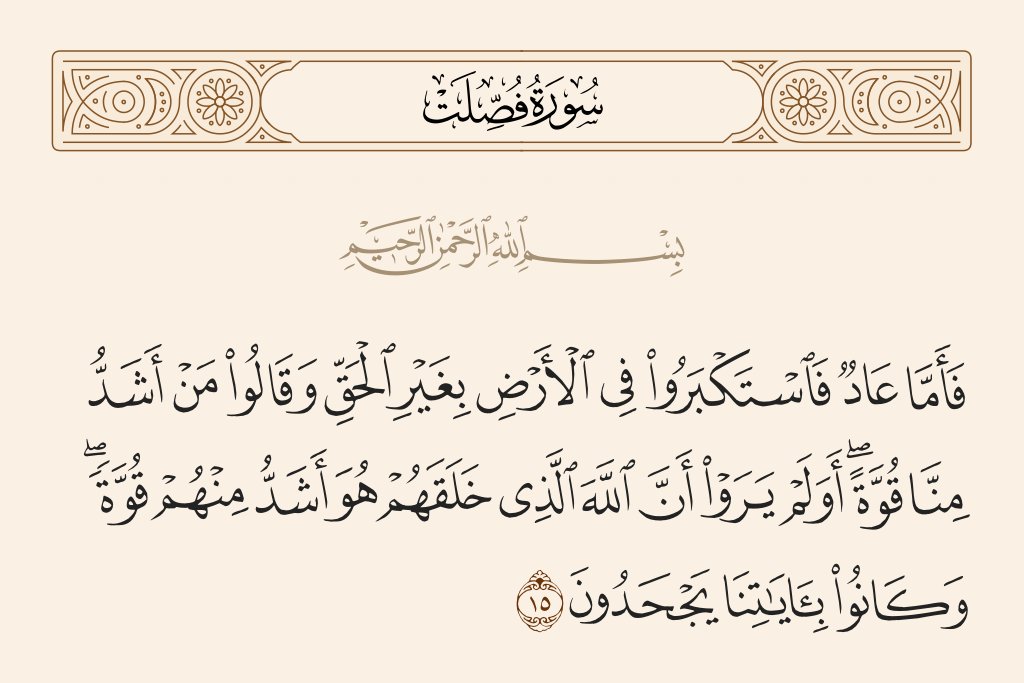 سُورَةُ فُصِّلَتْ
بِسْمِ ٱللَّهِ ٱلرَّحْمَٰنِ ٱلرَّحِيمِ
فَأَمَّا عَادٌ فَٱسْتَكْبَرُوا۟ فِى ٱلْأَرْضِ بِغَيْرِ ٱلْحَقِّ وَقَالُوا۟ مَنْ أَشَدُّ
مِنَّا قُوَّةً ۖ أَوَلَمْ يَرَوْا۟ أَنَّ ٱللَّهَ ٱلَّذِى خَلَقَهُمْ هُوَ أَشَدُّ مِنْهُمْ قُوَّةً ۖ
وَكَانُوا۟ بِـَٔايَٰتِنَا يَجْحَدُونَ ١٥